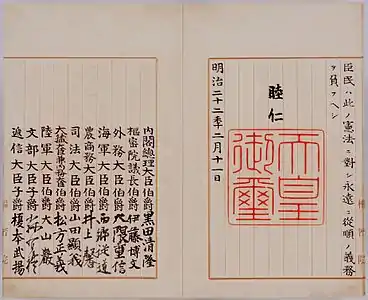 臣民ハ此ノ憲法ニ對シ永遠ニ從順ノ義務
ヲ負フヘシ
睦仁
天皇
御璽
明治二十二秊二月十一日
內閣總理大臣伯爵黑田清隆
樞密院議長伯爵伊藤博文
外務大臣伯爵大隈重信
海軍大臣伯爵西鄉從道
農商務大臣伯爵井上馨
司法大臣伯爵山田顯義
大藏大臣兼內務大臣伯爵松方正義
陸軍大臣伯爵大山巖
文部大臣子爵森有禮
遞信大臣子爵榎本武揚